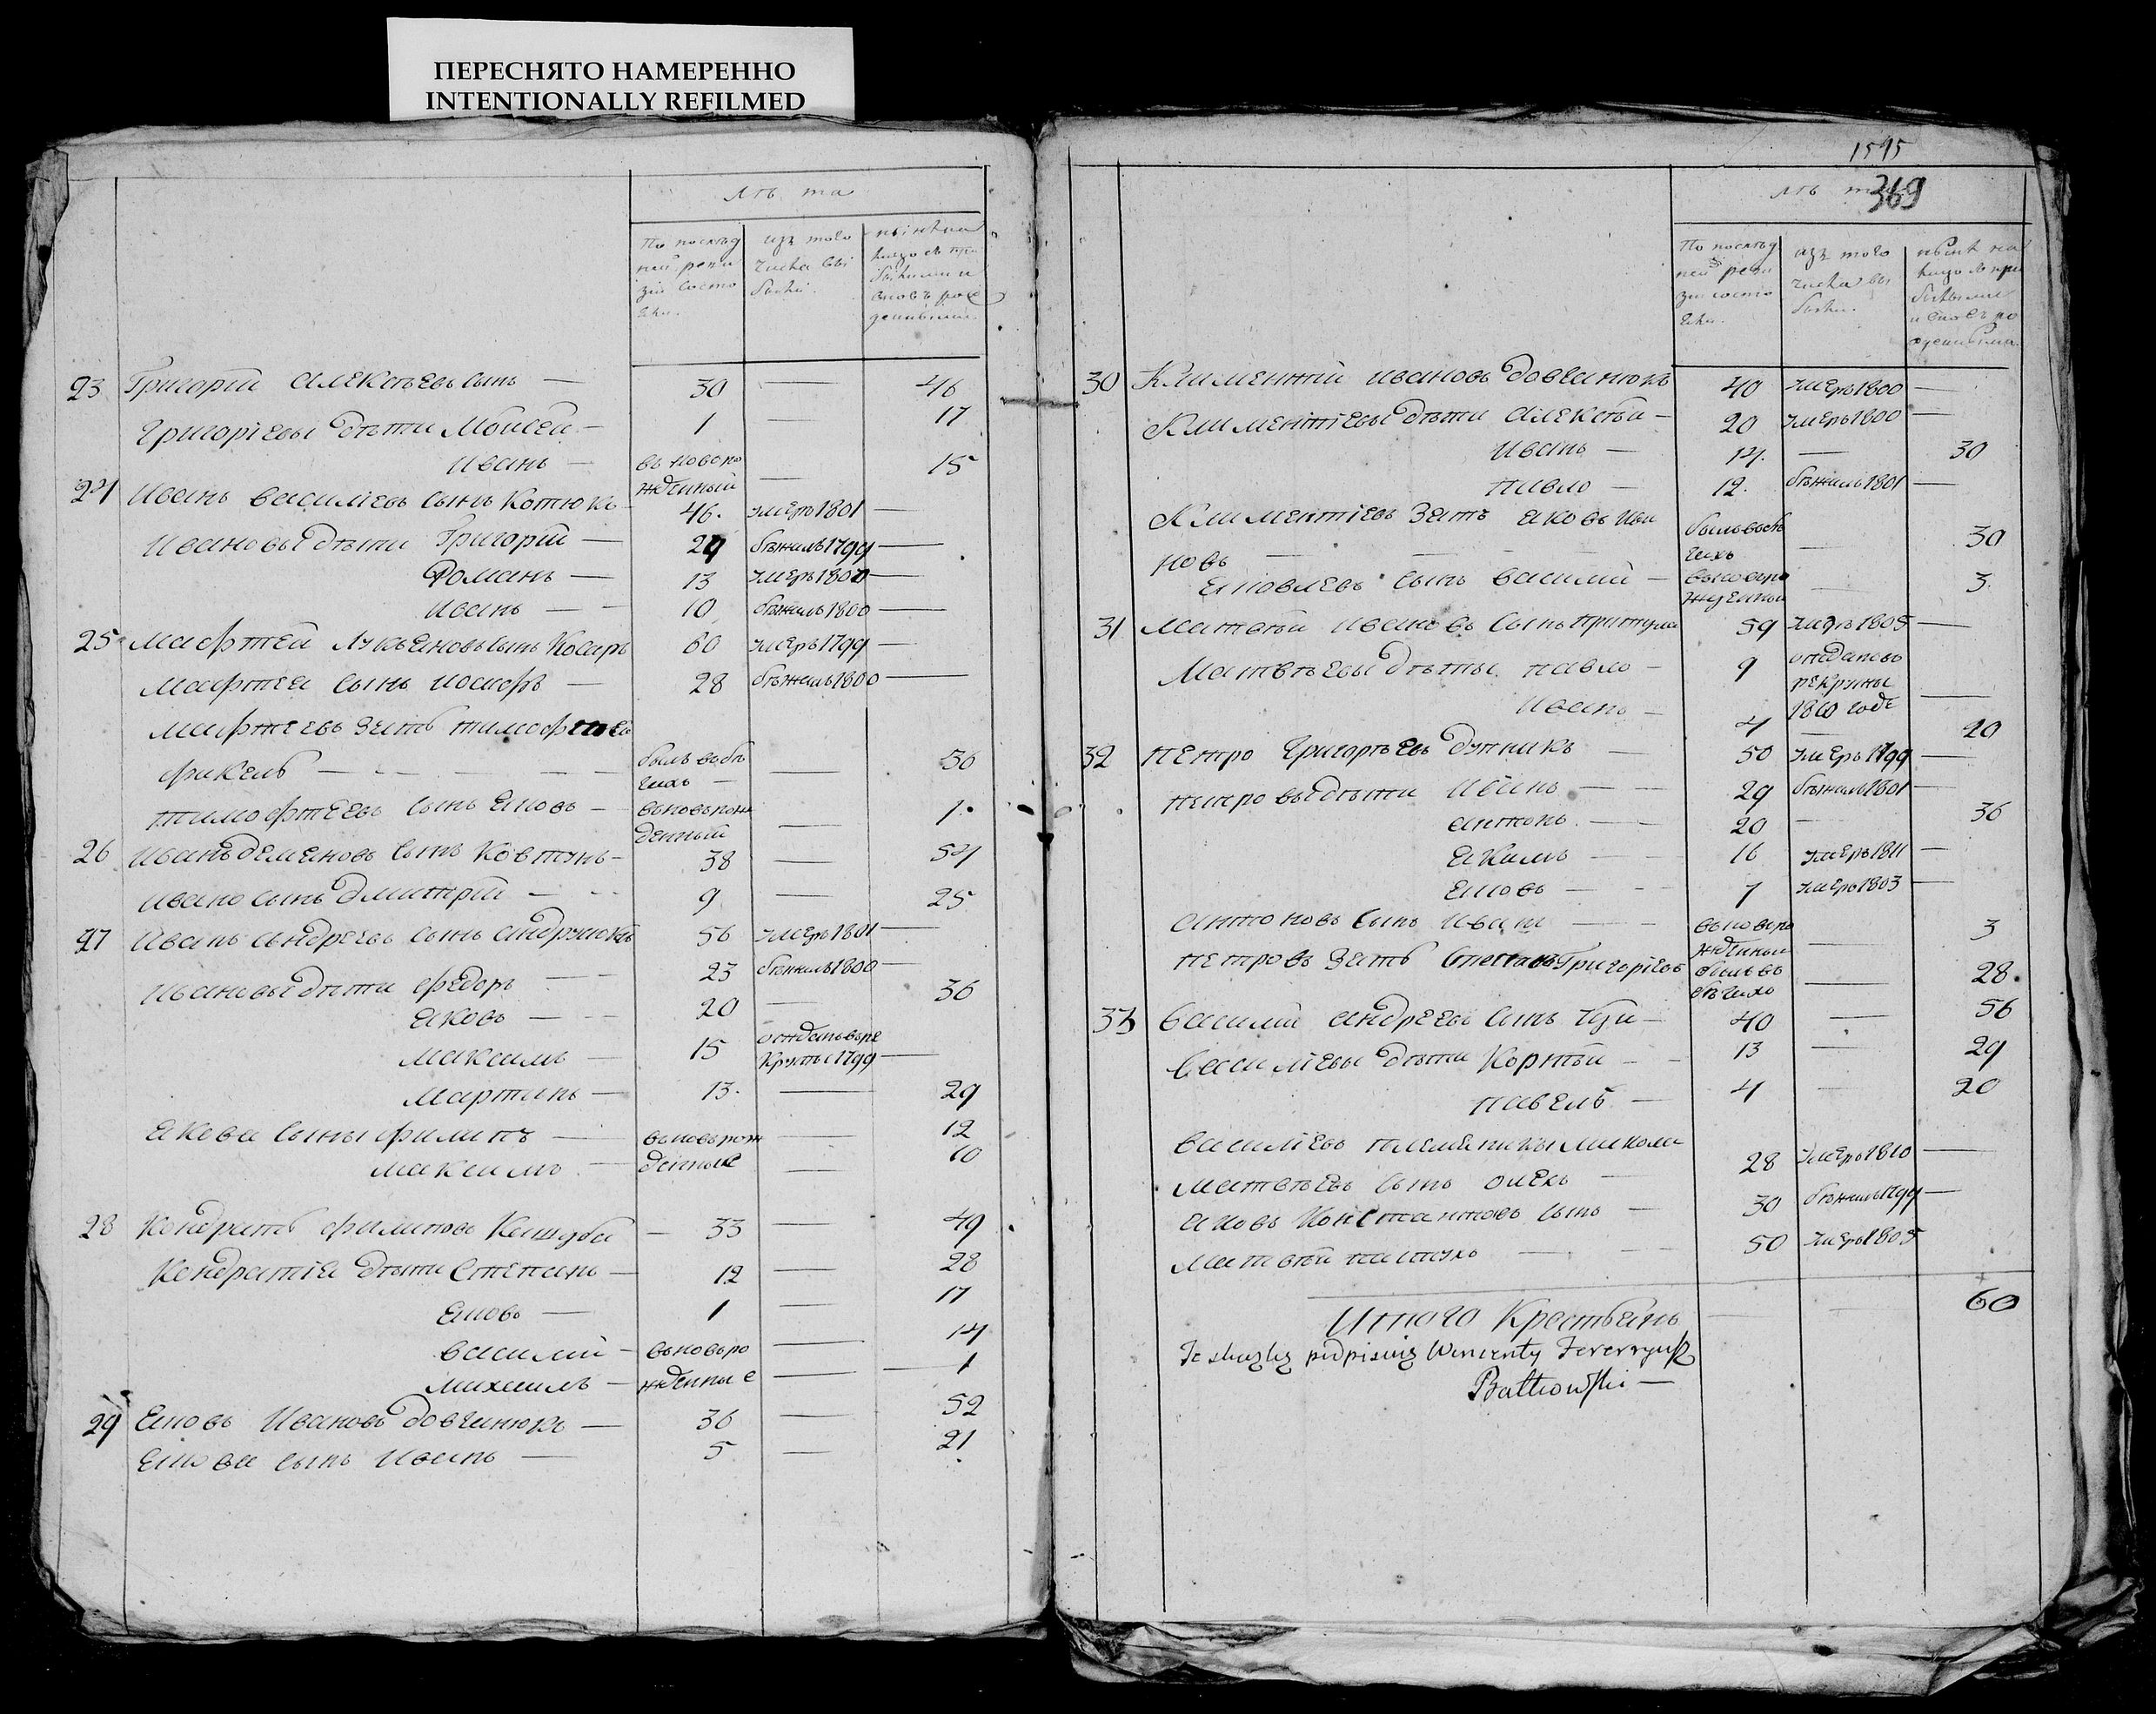 ПЕРЕСНЯТО НАМЕРЕННО
INTENTIONALLY REFILMED
лѣ та
По послѣд
ней реви
зіи состо
яли.
изъ того
числа вы
было.
нынѣ на
лицо съ при
былыми и
вновь рож
денными
23 Григорій Алексѣевъ сынъ — 30 — 46
Григоріевы дѣти Мойсей — 1 — 17
Иванъ — вновьро — 15
жденный
24 Иванъ Василіевъ сынъ Котюкъ 46. умеръ 1801 —
Ивановы дѣти Григорій — 29 бѣжилъ 1799 —
Романъ — 13 умеръ 1800 —
Иванъ — 10 бѣжилъ 1800 —
25 Мафтей Лукьяновъ сынъ Косаръ 60 умеръ 1799 —
Мафтея сынъ Иосифъ — 28 бѣжилъ 1800 —
Мафтеевъ зять Тимофтей
Фикель — былъ въ бѣ — 36
гахъ —
Тимофтеевъ сынъ Яковъ — вновьрож — 1.
денный
26 Иванъ Деменовъ сынъ Ковтунъ — 38 — 54
Ивано сынъ Дмитрій — 9 — 25
27 Иванъ Андреевъ сынъ Андрушюкъ 56 умеръ 1801 —
Ивановы дѣти Федоръ — 23 бѣжилъ 1800 —
Яковъ — 20 — 36
Максимъ — 15 отдатъ въ ре
круты 1799 —
Мартинъ — 13. — 29
Якова сыны Филипъ — вновьрож — 12
Максимъ — денные — 10
28 Кондратъ Филиповъ Кашуба — 33 — 49
Кондратія дѣти Степанъ — 12 — 28
Яковъ — 1 — 17
Василій — вновьро — 14
Михаилъ — жденные — 1
29 Яковъ Ивановъ Довганюкъ — 36 — 52
Якова сынъ Иванъ — 5 — 21
1595
369
лѣ та
По послѣд
ней реви
зіи состо
яли.
изъ того
числа вы
было.
нынѣ на
лицо съ при
былыми
и вновь ро
жденными.
30 Климентій Ивановъ Довганюкъ 40 умеръ 1800 —
Климентіевы дѣти Алексѣй — 20 умеръ 1800 —
Иванъ — 14. — 30
Павло — 12. бѣжилъ 1801 —
Климентіевъ зять Яковъ Ива
новъ — былъ въ бѣ — 30
гахъ
Яковлевъ сынъ Василій — вновьро — 3.
жденный
31 Матвѣй Ивановъ сынъ Притула 59 умеръ 1805 —
Матвѣевы дѣти Павло — 9 отдатъ въ
рекруты
1810 годѣ —
Иванъ — 4 — 20
32 Петро Григорьевъ Дутникъ — 50 умеръ 1799 —
Петровы дѣти Иванъ — 29 бѣжилъ 1801 —
Антонъ — 20 — 36
Якимъ — 16 умеръ 1811 —
Яковъ — 7 умеръ 1803 —
Антоновъ сынъ Иванъ — вновьро — 3
жденный
Петровъ зять Степанъ Григоріевъ былъ въ — 28.
бѣгахъ
33 Василій Андреевъ сынъ — 40 — 56
Василіевы дѣти Корнѣй — 13 — 29
Павелъ — 4 — 20
Василіевъ племеникы Микола
Матвѣевъ сынъ — 28 умеръ 1810 —
Яковъ Константовъ сынъ — 30 бѣжилъ 1799 —
Матвѣй Пастухъ — 50 умеръ 1805
Итого Крестьянъ — 60
Tę skazkę podpisuię Wincenty
Batkowski —